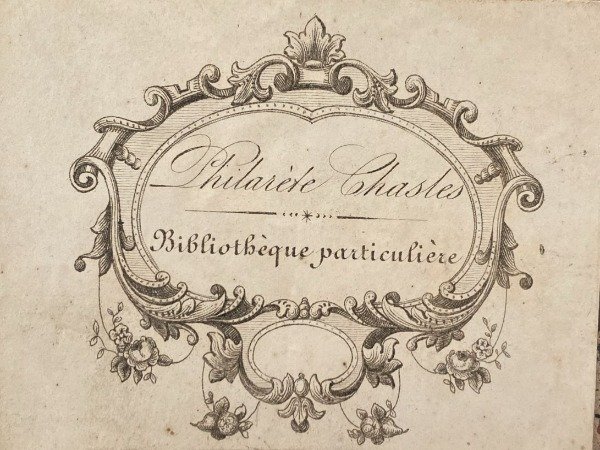 Philarète Chasles
Bibliothèque particulière